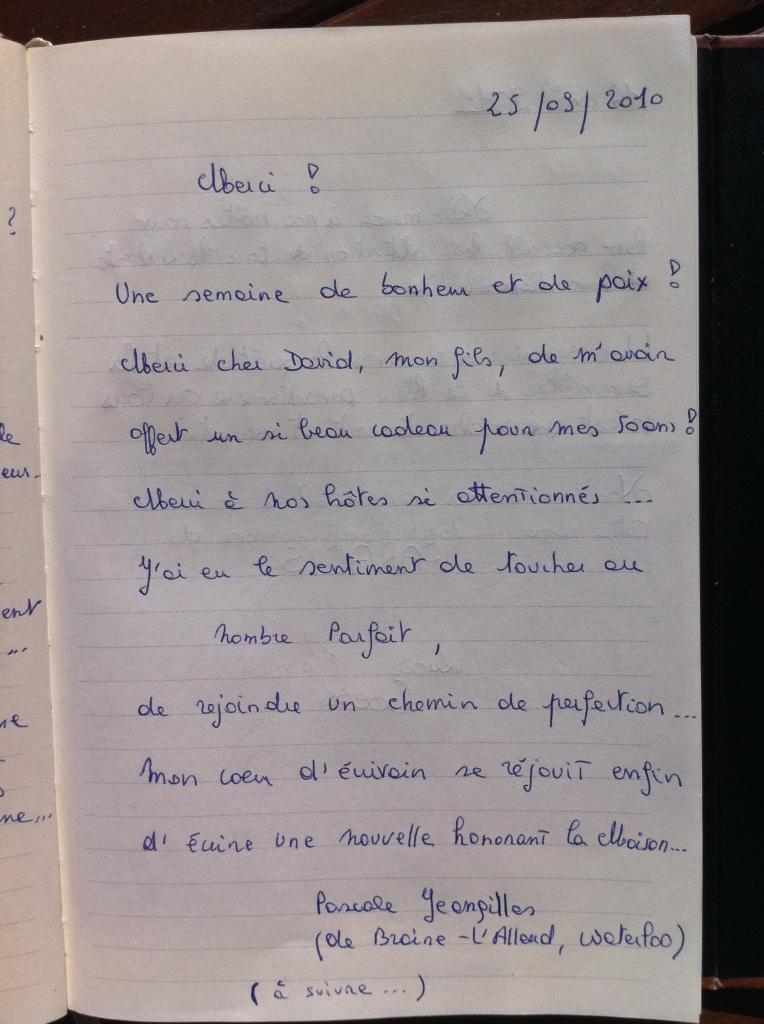 25/09/2010
Merci !
Une semaine de bonheur et de paix !
Merci cher David, mon fils, de m'avoir
offert un si beau cadeau pour mes 50 ans !
Merci à nos hôtes si attentionnés ...
J'ai eu le sentiment de toucher au
nombre Parfait,
de rejoindre un chemin de perfection ...
Mon coeur d'écrivain se réjouit enfin
d'écrire une nouvelle honorant la Maison...
Pascale Jeangilles
(de Braine-L'Alleud, Waterloo)
(à suivre ...)
?
le
eur.
ent
...
ne
ne...